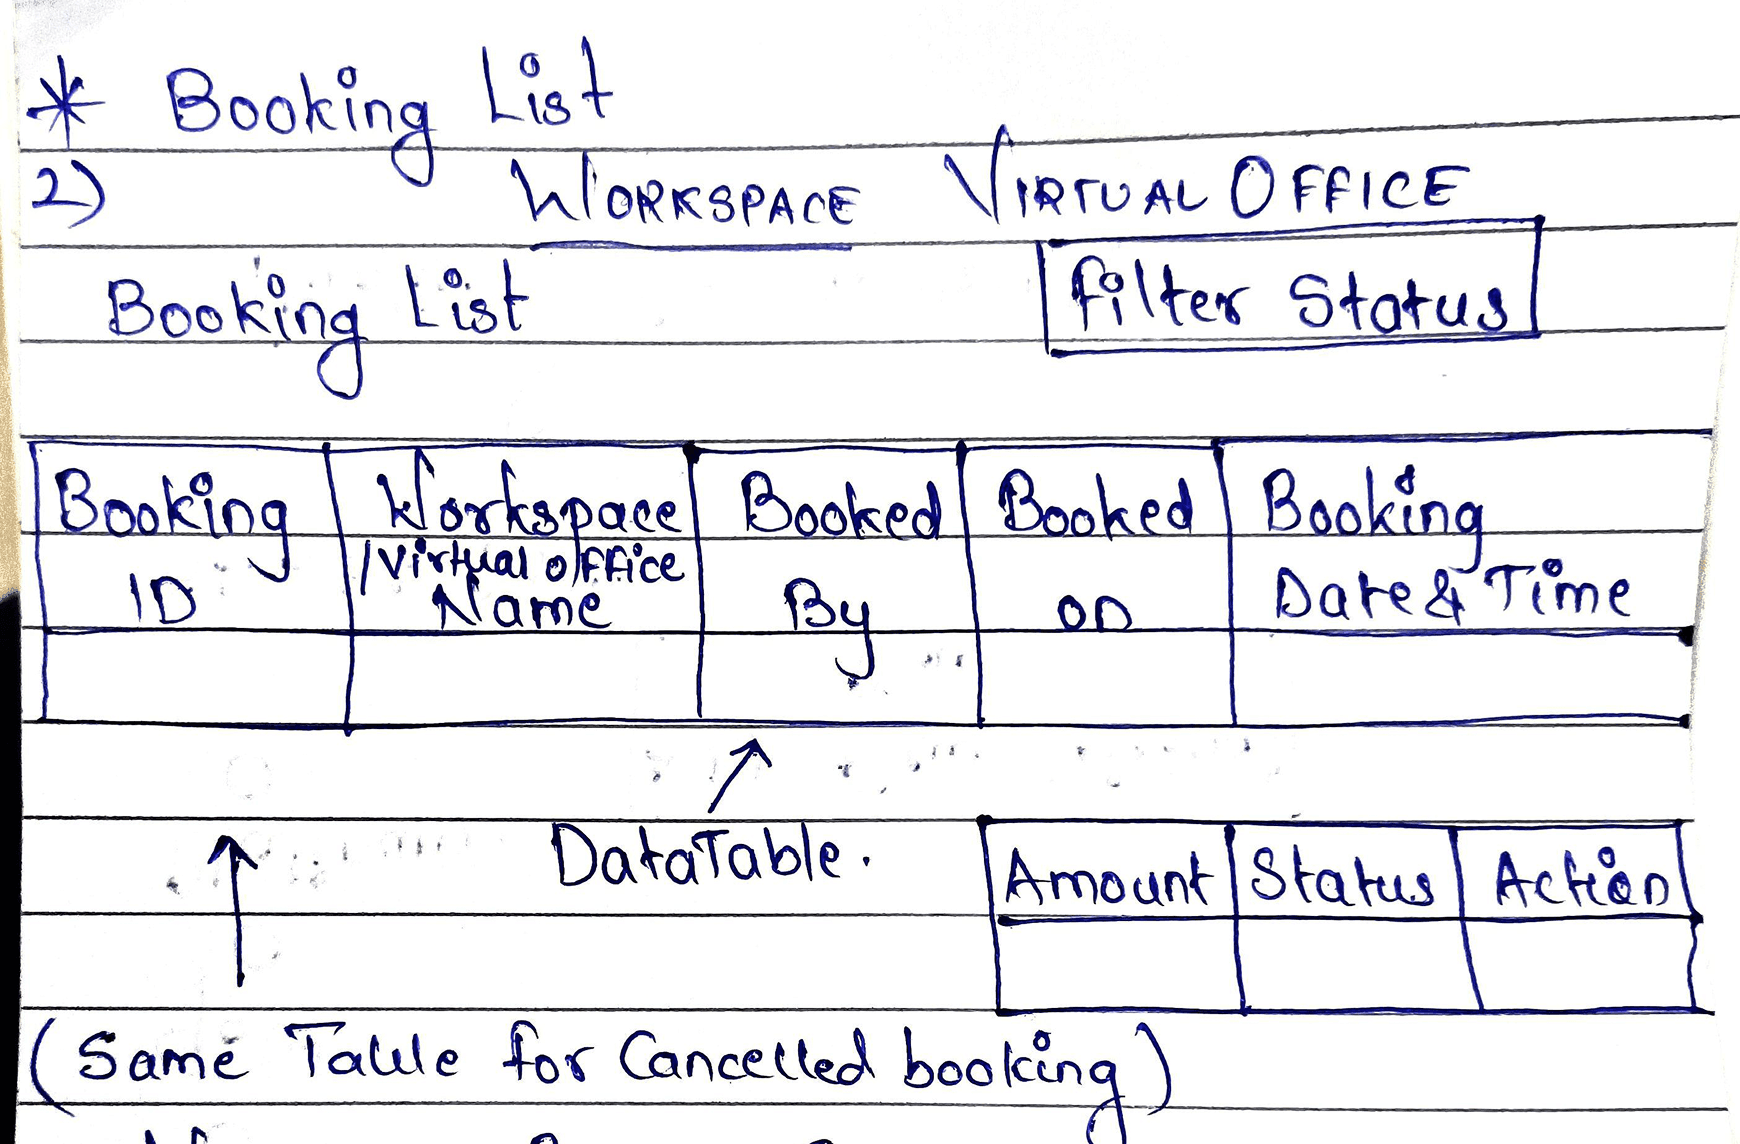 * Booking List
2) WORKSPACE VIRTUAL OFFICE
Booking List Filter Status
Booking Workspace Booked Booked Booking
/Virtual office
ID Name By on Date & Time
DataTable.
Amount Status Action
(Same Table for Cancelled booking)